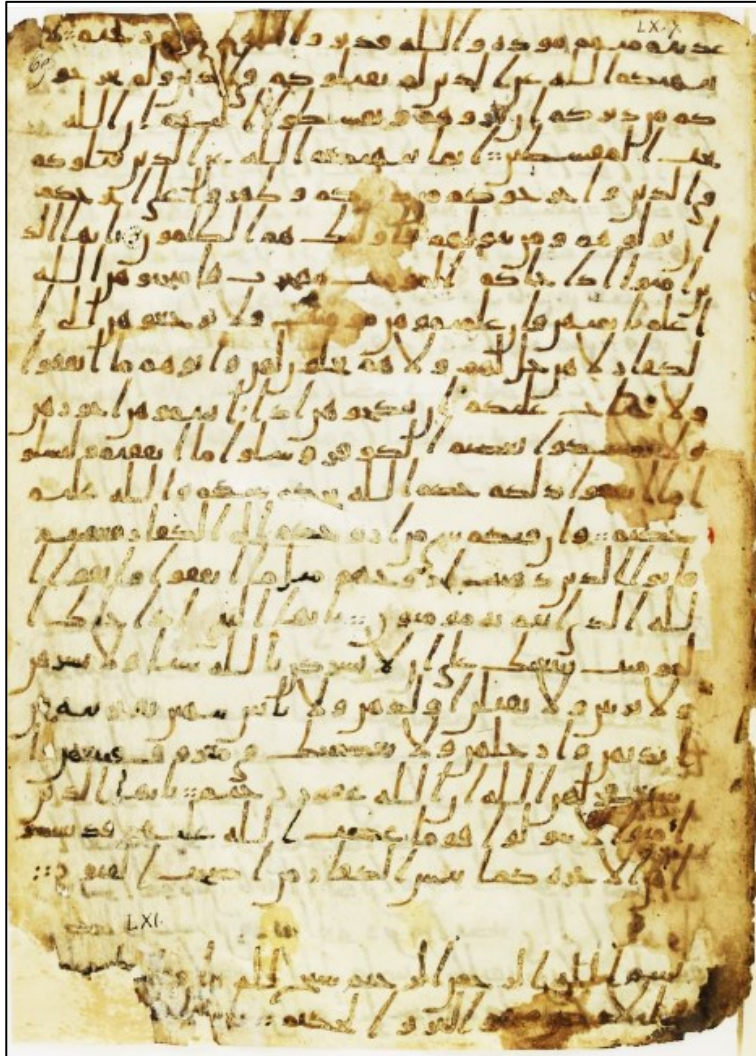 LX.7.
عديتم منهم موده والله قدير والله رحيم
ينهيكم الله عن الذين لم يقتلوكم في الدين ولم يخرجو
كم من ديركم ان تبروهم وتقسطوا اليهم ان الله
يحب المقسطين انما ينهيكم الله عن الذين قتلوكم
في الدين واخرجوكم من ديركم وظهروا على اخرجكم
ان تولوهم ومن يتولهم فاولئك هم الظلمون يايها الذ
ين امنوا اذا جاكم المومنت مهجرت فامتحنوهن الله
اعلم بايمنهن فان علمتموهن مومنت فلا ترجعوهن الى ا
لكفار لا هن حل لهم ولا هم يحلون لهن واتوهم ما انفقوا
ولا جناح عليكم ان تنكحوهن اذا اتيتموهن اجورهن
ولا تمسكوا بعصم الكوفر وسلوا ما انفقتم وليسلو
ا ما انفقوا ذلكم حكم الله يحكم بينكم والله عليم
حكيم وان فتكم شي من ازوجكم الى الكفار فعقبتم
فاتوا الذين ذهبت ازوجهم مثل ما انفقوا واتقوا ا
لله الذي انتم به مومنون يايها النبي اذا جاك ا
لمومنت يبيعنك على ان لا يشركن بالله شيا ولا يسرقن
ولا يزنين ولا يقتلن اولدهن ولا ياتين ببهتن يفترينه بين
ايديهن وارجلهن ولا يعصينك في معروف فبيعهن وا
ستغفر لهن الله ان الله غفور رحيم يايها الذين
امنوا لا تتولوا قوما غضب الله عليهم قد يئسوا
من الاخره كما يئس الكفار من اصحب القبور
LXI.
بسم الله الرحمن الرحيم سبح لله ما في
وهو العزيز الحكيم